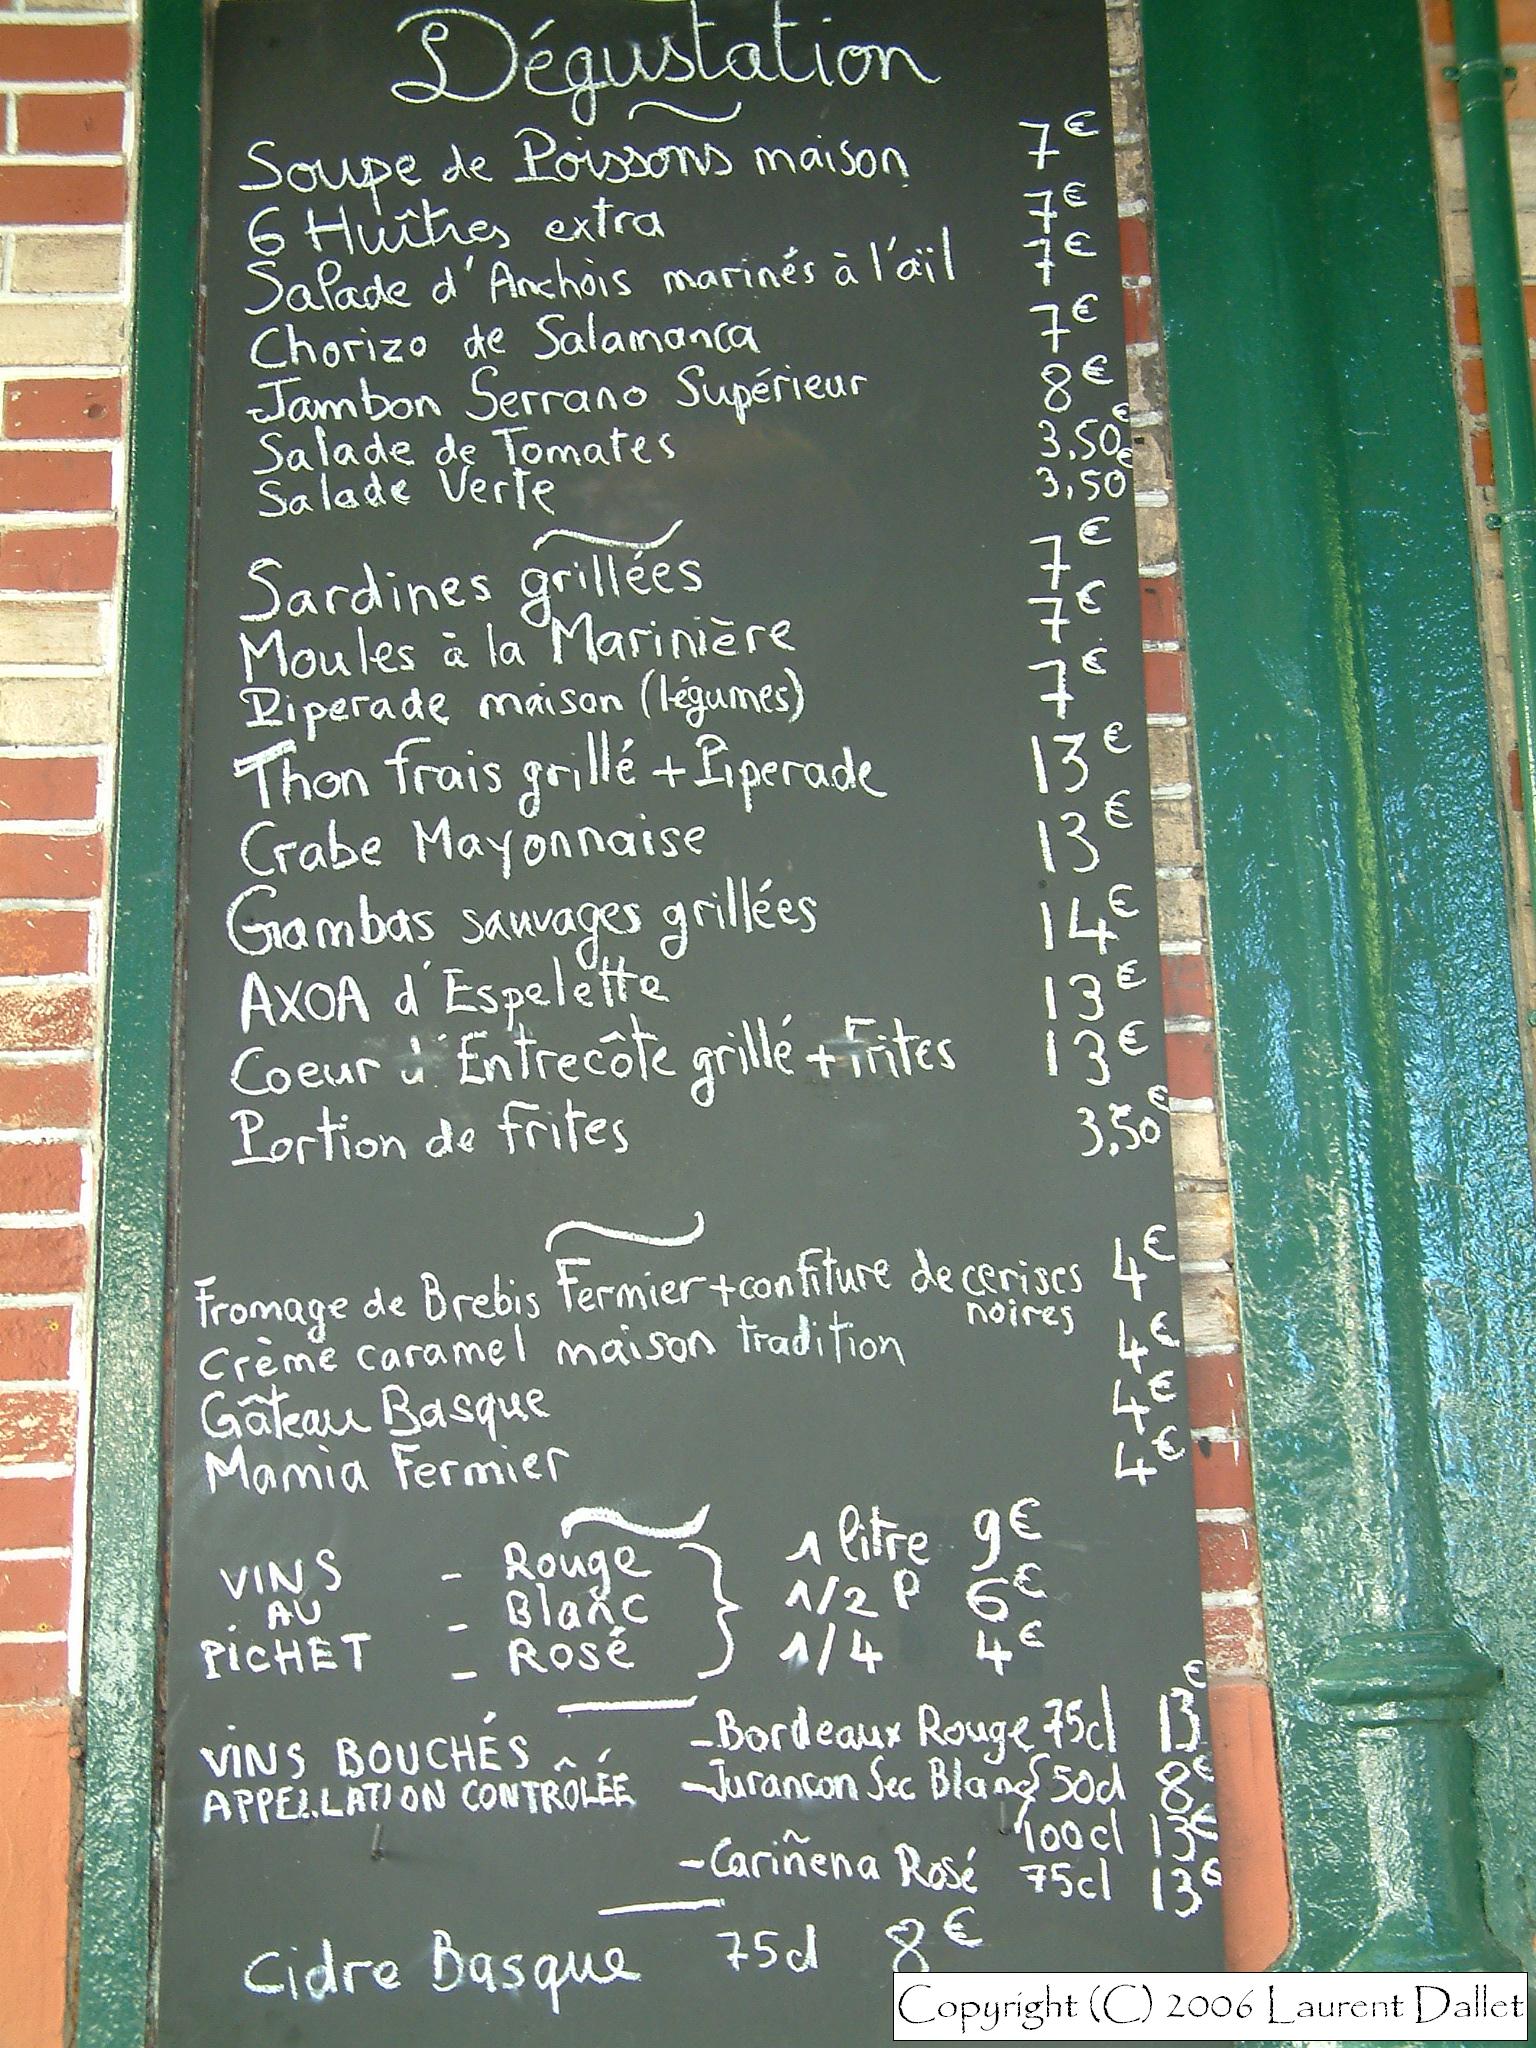 Dégustation
Soupe de Poissons maison 7€
6 Huîtres extra 7€
Salade d'Anchois marinés à l'aïl 7€
Chorizo de Salamanca 7€
Jambon Serrano Supérieur 8€
Salade de Tomates 3,50€
Salade Verte 3,50€
Sardines grillées 7€
Moules à la Marinière 7€
Piperade maison (légumes) 7€
Thon frais grillé + Piperade 13€
Crabe Mayonnaise 13€
Gambas sauvages grillées 14€
AXOA d'Espelette 13€
Coeur d'Entrecôte grillé + Frites 13€
Portion de frites 3,50€
Fromage de Brebis Fermier + confiture de cerises 4€
noires
Crème caramel maison tradition 4€
Gâteau Basque 4€
Mamia Fermier 4€
VINS - Rouge 1 litre 9€
AU - Blanc 1/2 P 6€
PICHET - Rosé 1/4 4€
VINS BOUCHÉS - Bordeaux Rouge 75cl 13€
APPELLATION CONTRÔLÉE - Jurancon Sec Blanc 50cl 8€
100cl 13€
- Cariñena Rosé 75cl 13€
Cidre Basque 75cl 8€
Copyright (C) 2006 Laurent Dallet